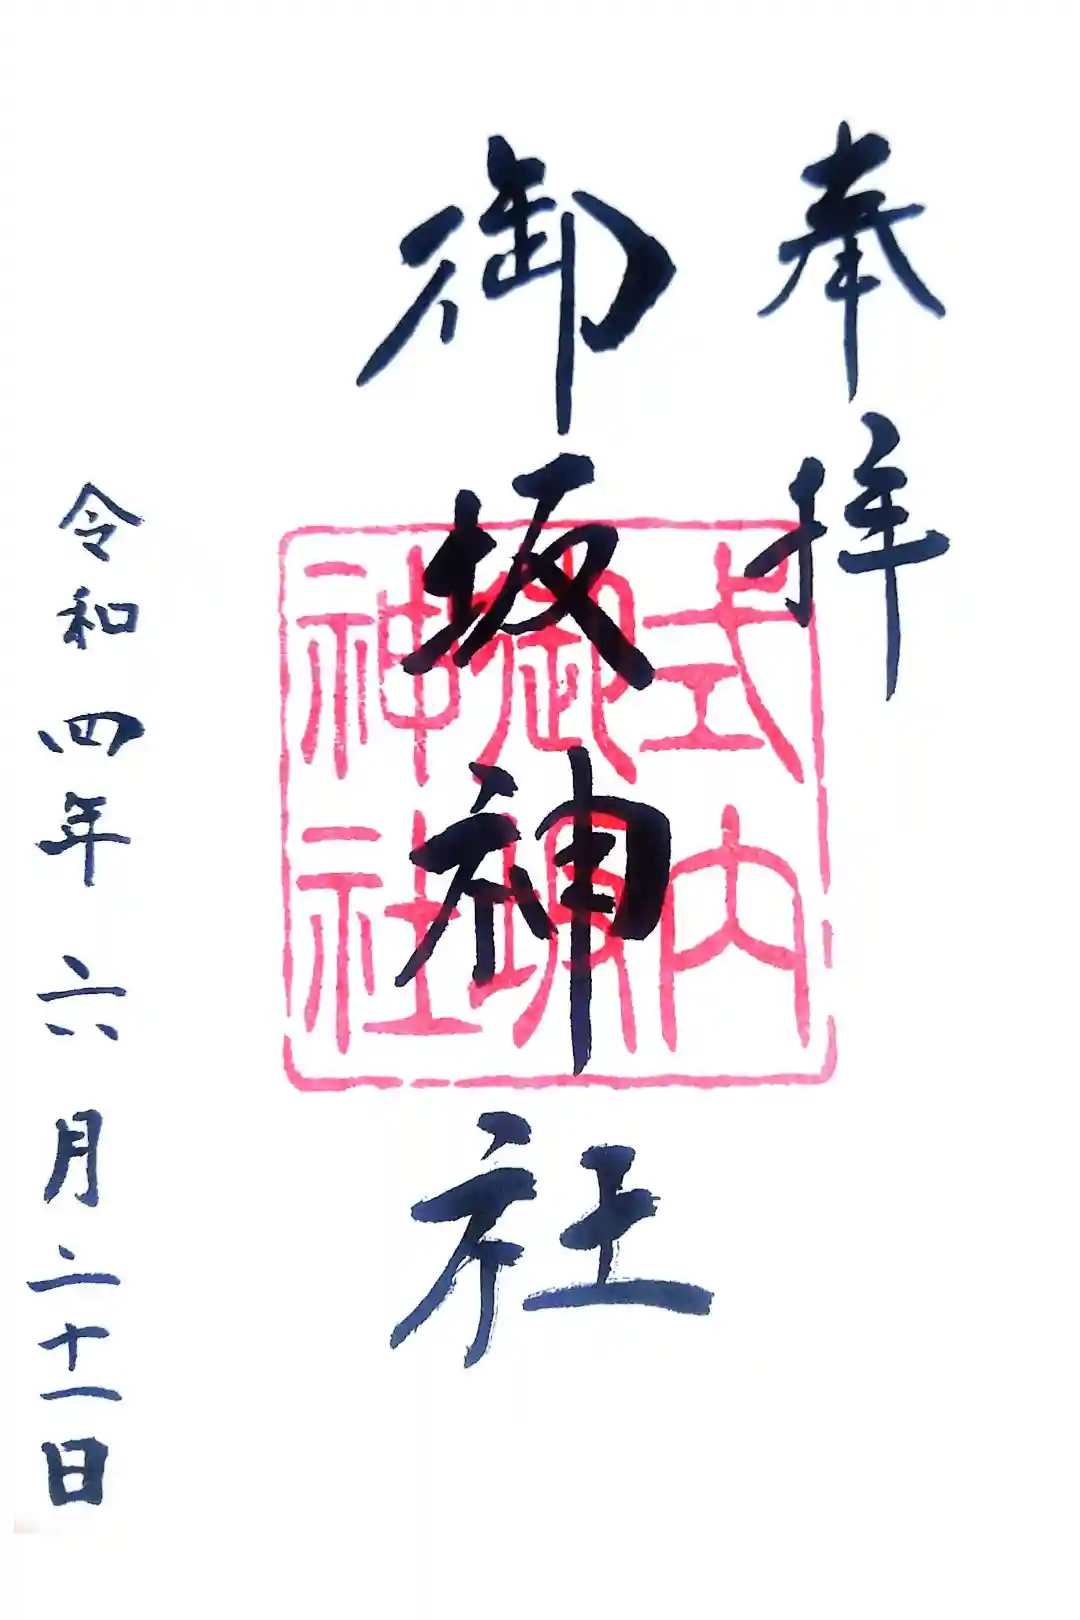 奉拝
御坂神社
式内
御坂
神社
令和四年六月二十一日